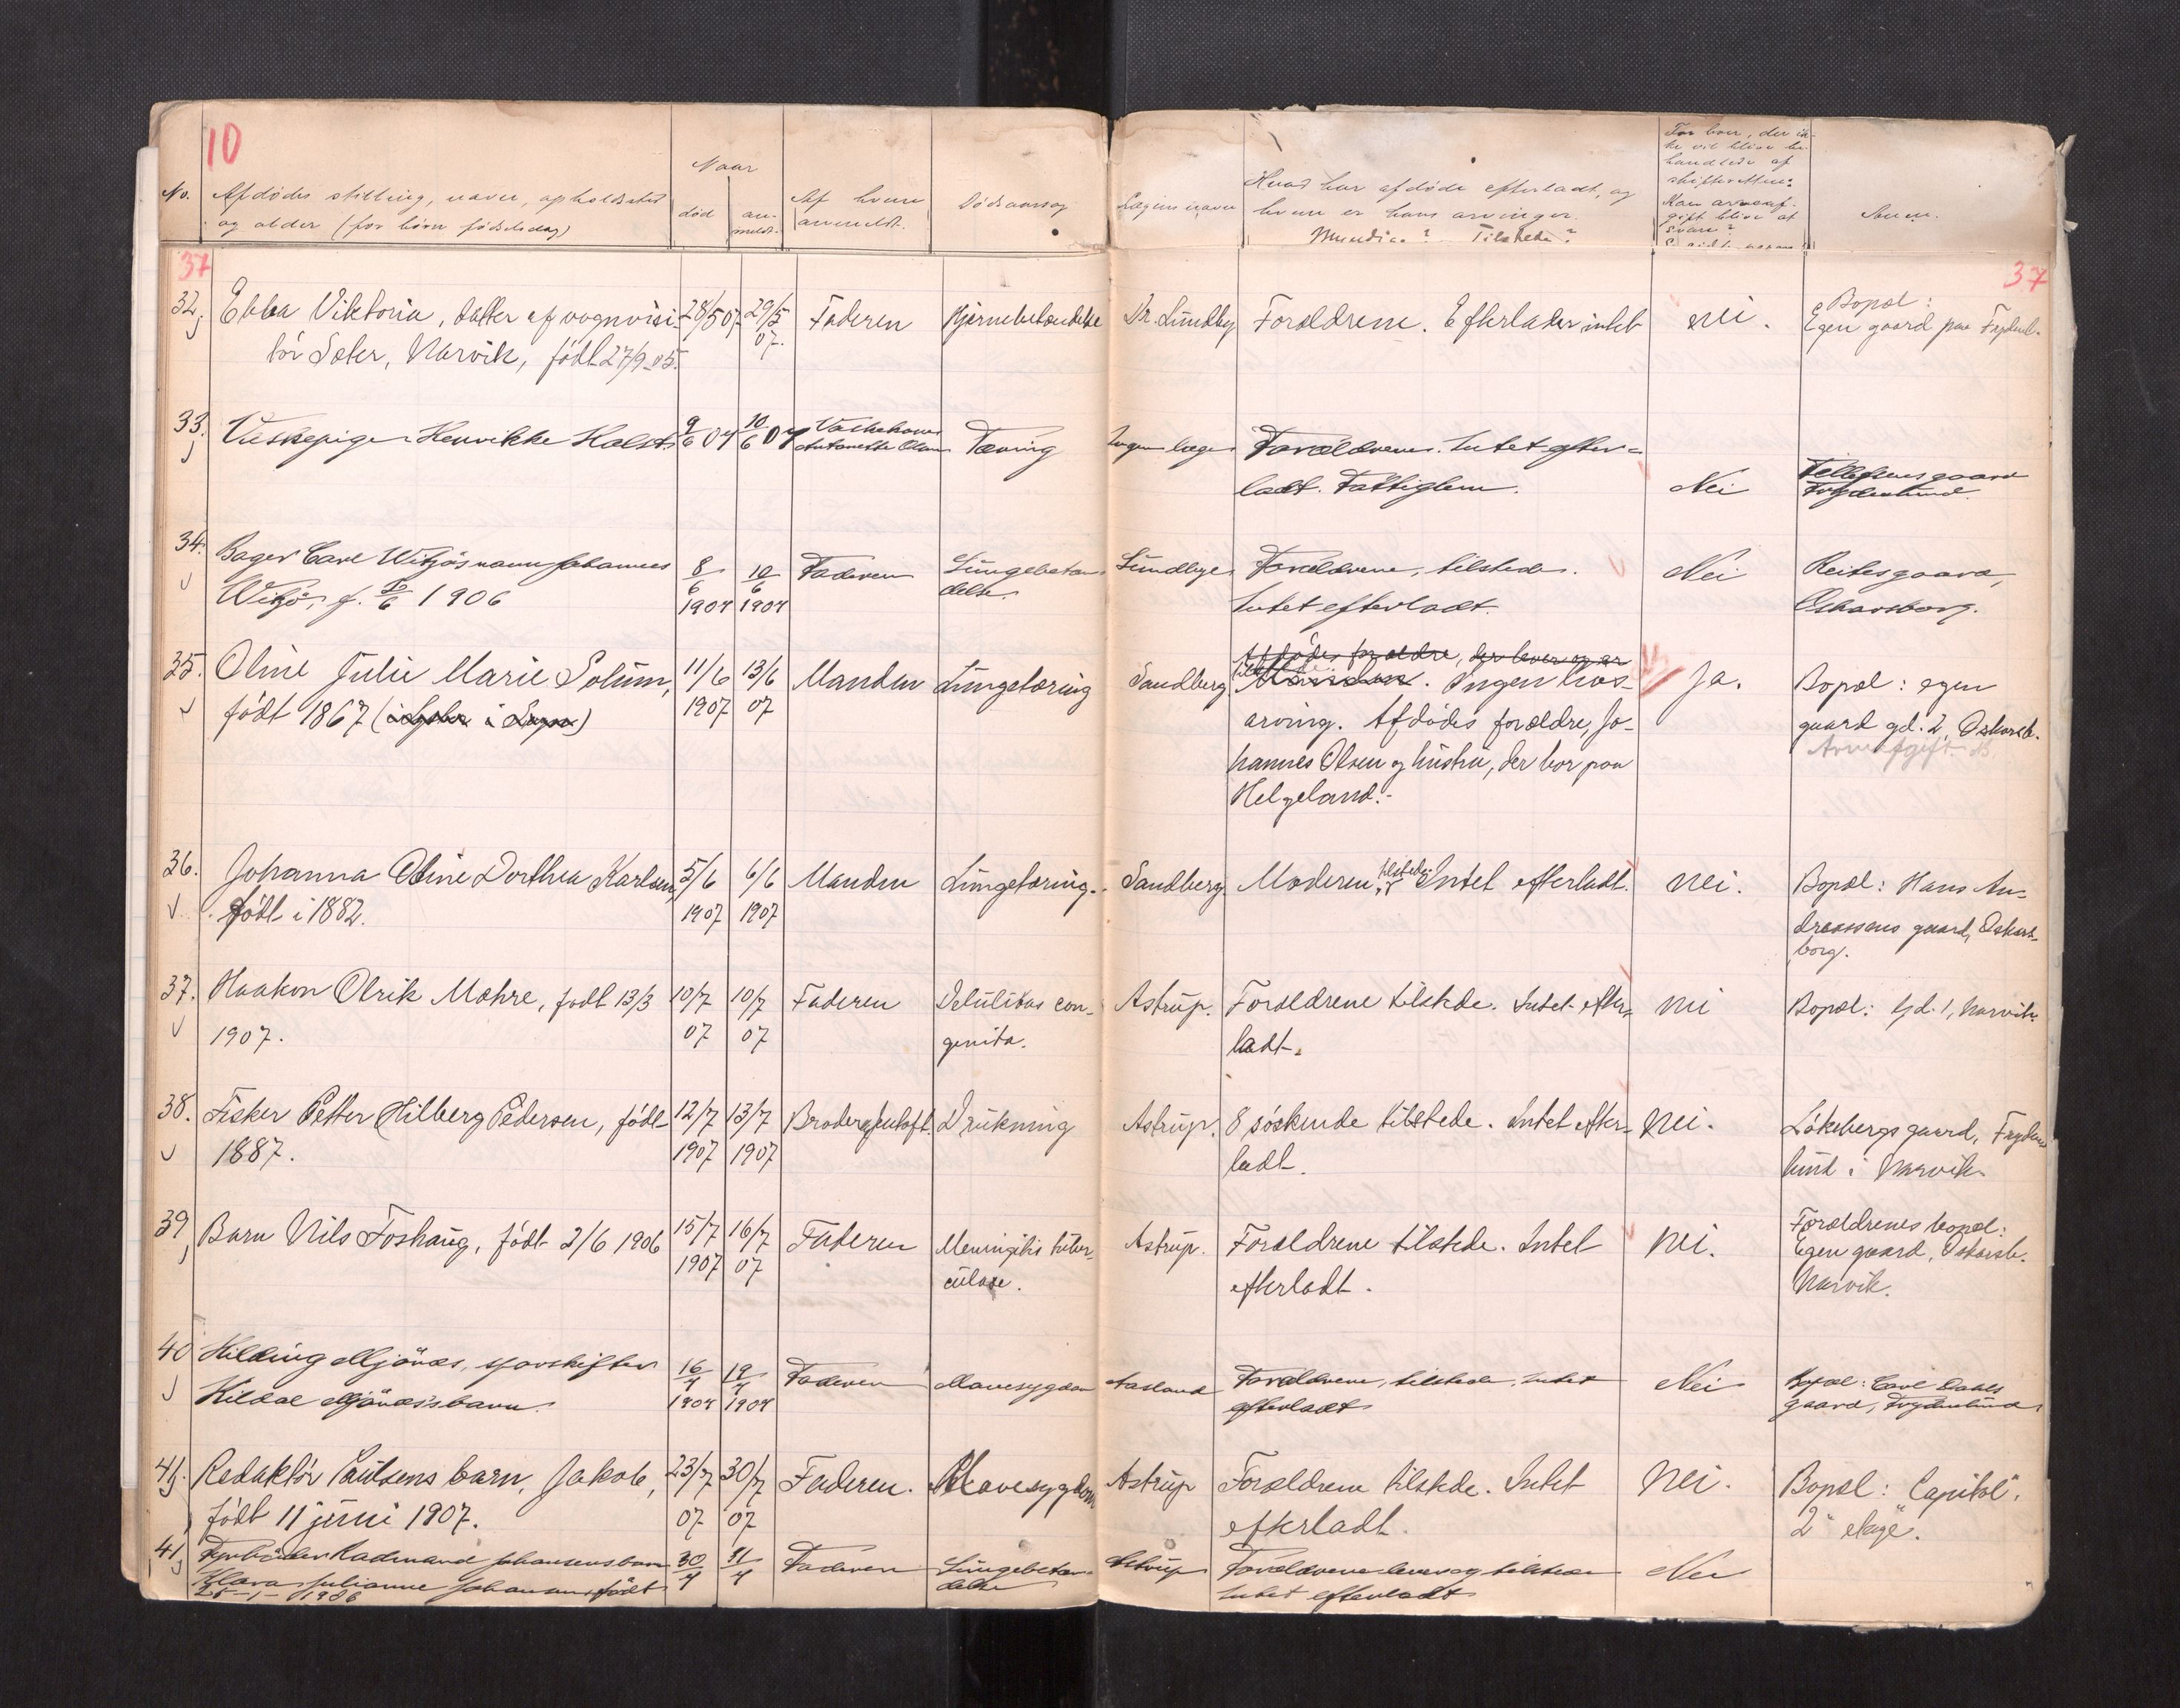 10
No.
Afdødes stilling, navn, opholdssted
og alder (for børn fødselsdag)
Naar
død
an-
meldt.
Af hvem
anmeldt.
Dødsaarsag
Lægens navn
Hvad har afdøde efterladt, og
hvem er hans arvinger.
Myndige? Tilstede?
For boer, der ik-
ke vil blive be-
handlede af
skifteretten:
Kan arveaf-
gift blive at
svare?
Anm.
37
37
32. Ebba Viktoria, datter af vognvisi- 28/5 07 29/5 Faderen Hjernebetændelse Dr. Lundby Forældrene. Efterlader intet nei. Bopæl:
07. Egen gaard paa Frydenl.
tør Sæter, Narvik, født 27/9-05.
33. Væskepige Henrikke Halst. 9/6 07 10/6 07 Antonette Olsen Tæring Ingen læge Forældrene. Intet efter-
ladt. Fattiglem. Nei Tellefsens gaard
Frydenlund.
34. Bager Carl Witzøs navn Johannes 8/6 10/6 Faderen Lungebetæn- Lundbye Forældrene, tilstede. Nei Reitesgaard,
Witzø, f. /6 1906 1907 1907 delse. Intet efterladt. Oskarsborg.
35. Oline Julie Marie Solum, 11/6 13/6 Manden Lungetæring Sandberg Afdødes forældre, der lever og er
Manden. Ingen livs- Ja. Bopæl: egen
født 1867 ( i ) 1907 07 arving. Afdødes forældre, Jo- gaard gd. 2, Oskarsb.
Arveafgift
hannes Olsen og hustru, der bor paa
Helgeland.-
36. Johanna Oline Dorthea Karlsen, 5/6 6/6 Manden Lungetæring. Sandberg Manden, tilstede. Intet efterladt. nei. Bopæl: Hans An-
født i 1882. 1907 1907 dreassens gaard, Oskars-
borg.
37. Haakon Olrik Mæhre, født 13/3 10/7 10/7 Faderen Debilitas con- Astrup. Forældrene tilstede. Intet efter- nei Bopæl: Gd. 1, Narvik.
1907. 07 07 genita. ladt.
38. Fisker Petter Hilberg Pedersen, født 12/7 13/7 Broder Jentoft. Drukning Astrup. 8 søskende tilstede. Intet efter- nei. Løkebergs gaard, Fryden-
1887. 1907 1907 ladt. lund i Narvik.
39 Barn Nils Foshaug, født 2/6 1906 15/7 16/7 Faderen Meningitis tuber- Astrup. Forældrene tilstede. Intet nei. Forældrenes bopæl:
1907 07 culose. efterladt. Egen gaard, Oskarsb.
Narvik.
40 Hilding Mjönæs, sporskifter 16/7 19/7 Faderen Mavesygdom Aasland Forældrene, tilstede. Intet Nei Bopæl: Carl Dahls
Kildal Mjönæs's barn. 1907 1907 efterladt gaard, Frydenlund
41. Redaktør Paulsens barn, Jakob, 23/7 30/7 Faderen. Mavesygdom Astrup Forældrene tilstede. Intet nei. Bopæl: "Capitol",
født 11 juni 1907. 07 07 efterladt. 2den etage.
41. Fyrbøder Johansens barn 30/7 31/7 Faderen Lungebetæn- Astrup Forældrene lever og tilstede Nei
Klara Julianne Johansen, født delse Intet efterladt